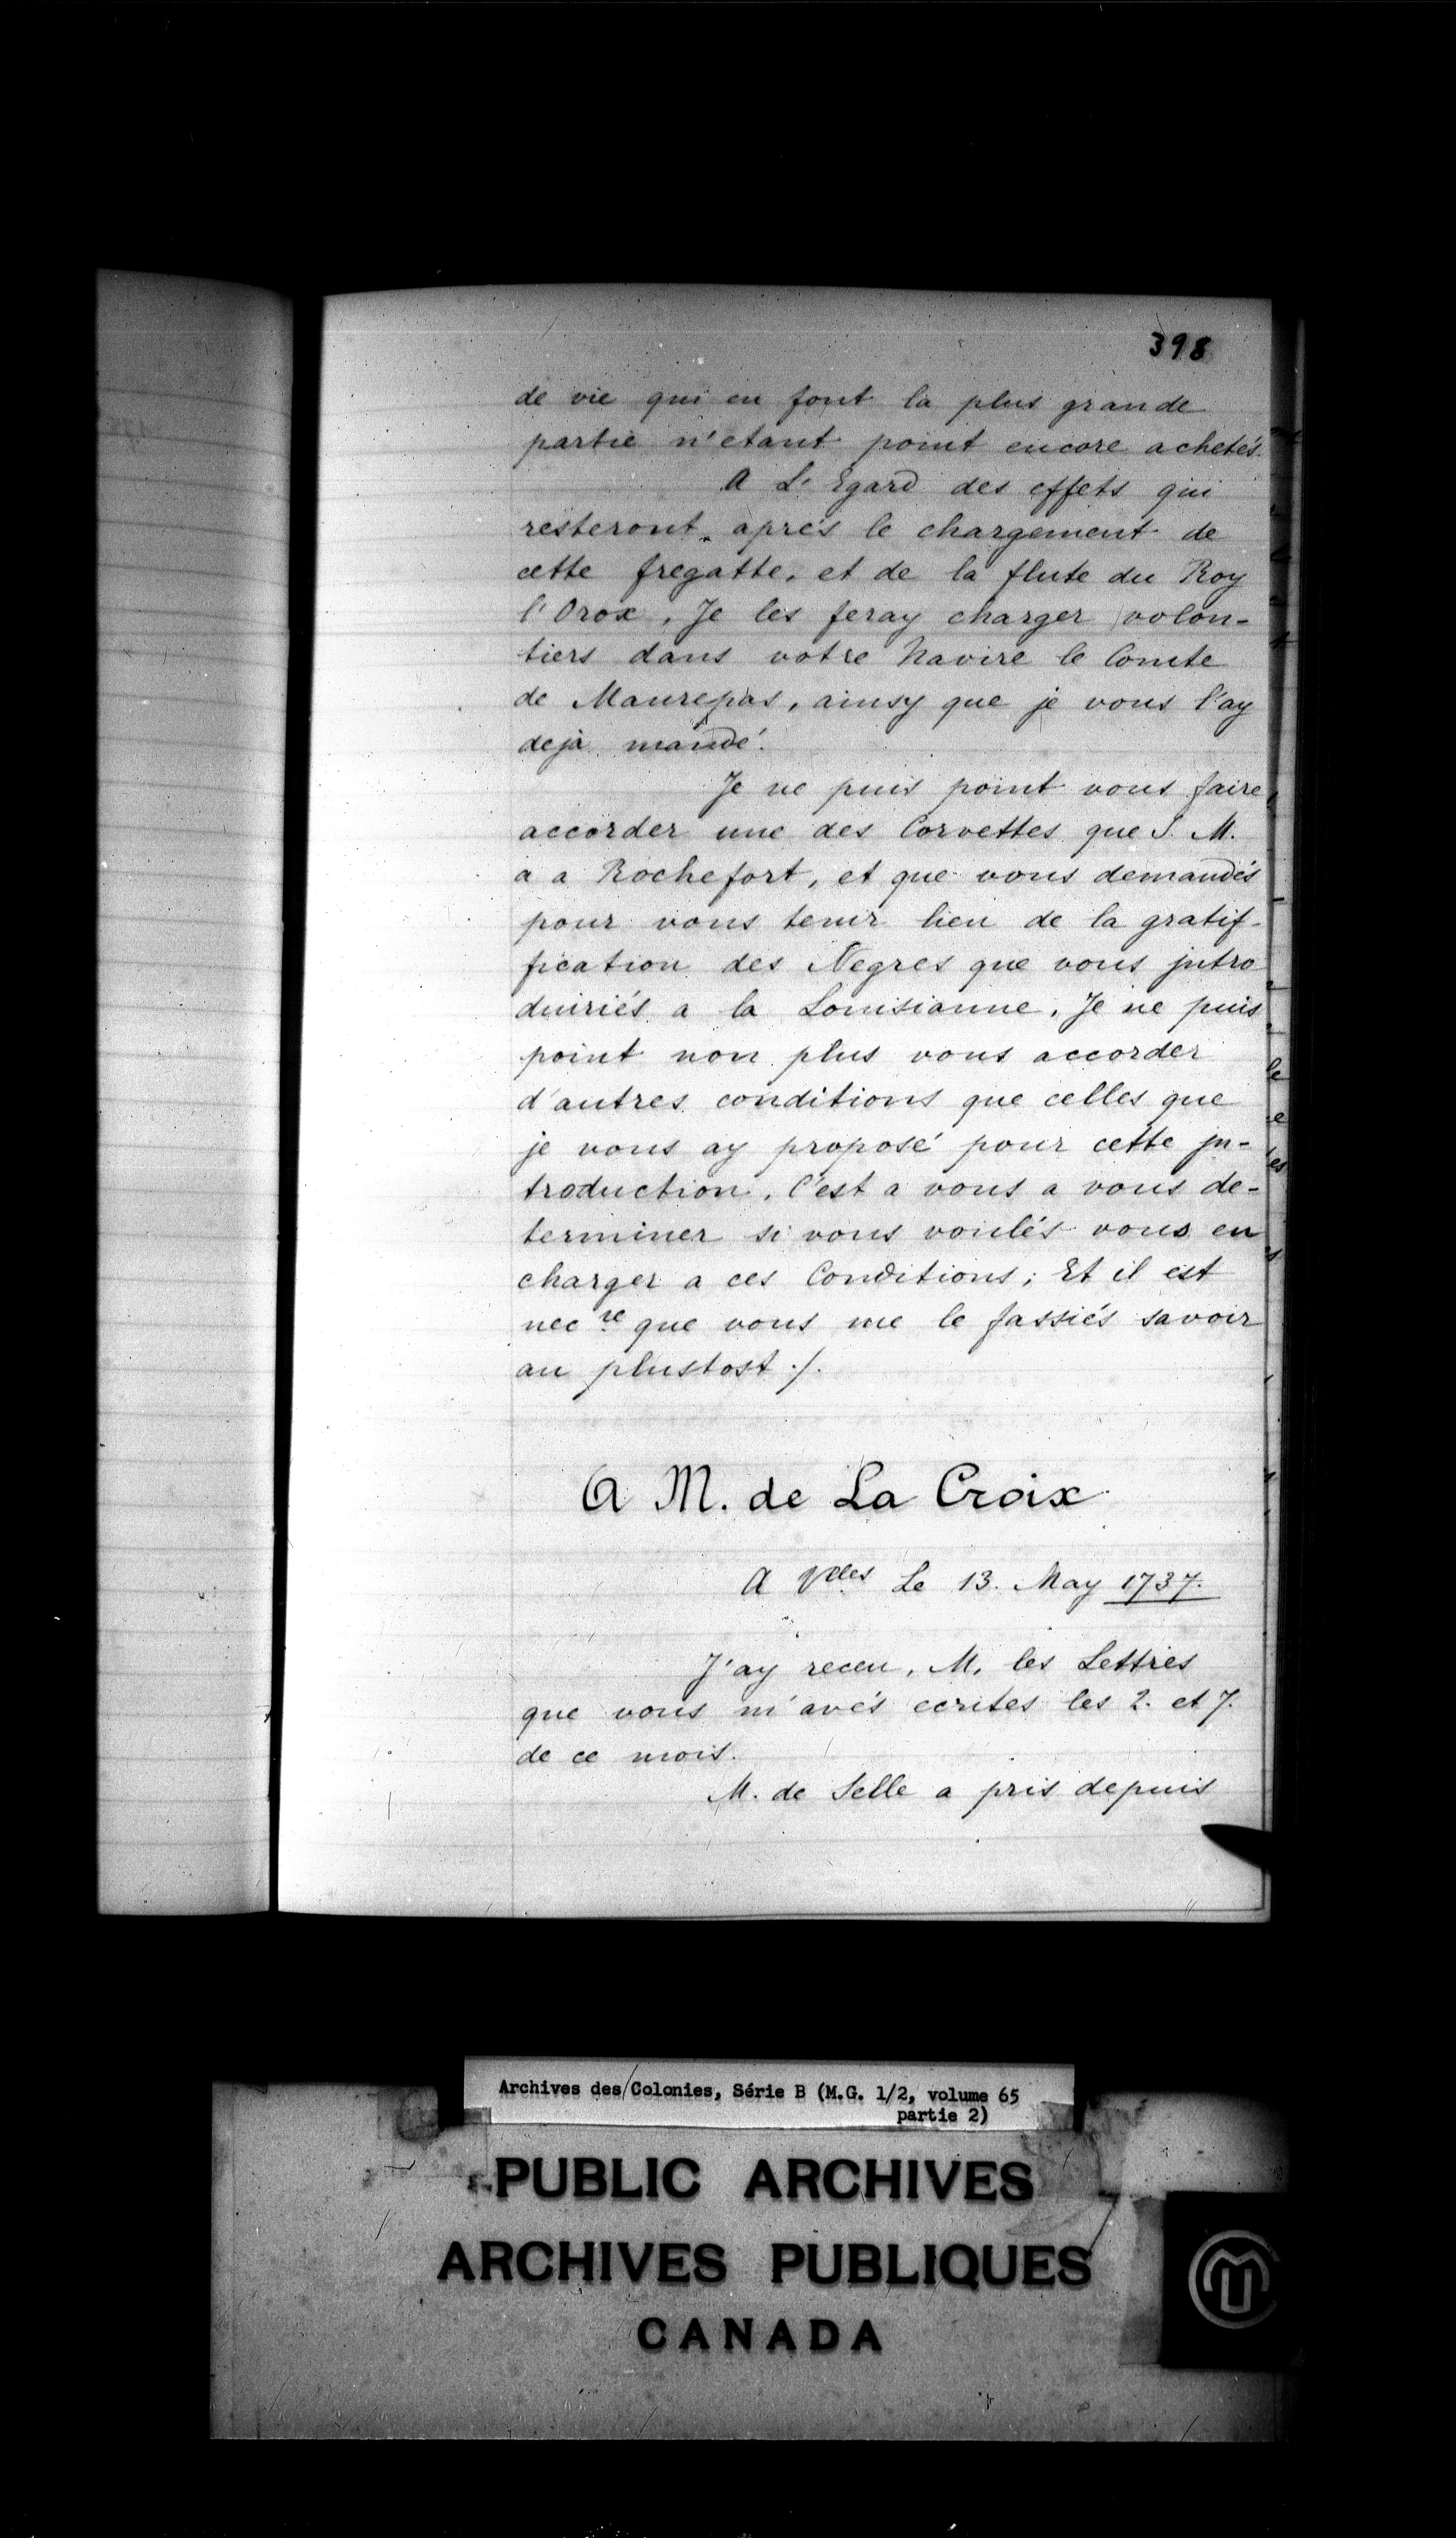 398
de vie qui en font la plus grande
partie n'etant point encore achetés.
A L'Egard des effets qui
resteront aprés le chargement de
cette fregatte, et de la flute du Roy
l'Orox, Je les feray charger volon-
tiers dans votre Navire le Comte
de Maurepas, ainsy que je vous l'ay
dejà mandé.
Je ne puis point vous faire
accorder une des Corvettes que S. M.
a a Rochefort, et que vous demandés
pour vous tenir lieu de la gratif-
fication des Negres que vous jntro
duiriés a la Louisianne, Je ne puis
point non plus vous accorder
d'autres conditions que celles que
je vous ay proposé pour cette jn-
troduction, C'est a vous a vous de-
terminer si vous voulés vous en
charger a ces Conditions; Et il est
necre que vous me le fassiés savoir
au plustost ./.
A M. de La Croix
A Vlles Le 13. May 1737.
J'ay receu, M. les Lettres
que vous m'avés ecrites les 2. et 7.
de ce mois.
M. de Selle a pris depuis
Archives des Colonies, Série B (M.G. 1/2, volume 65
partie 2)
PUBLIC ARCHIVES
ARCHIVES PUBLIQUES
CANADA